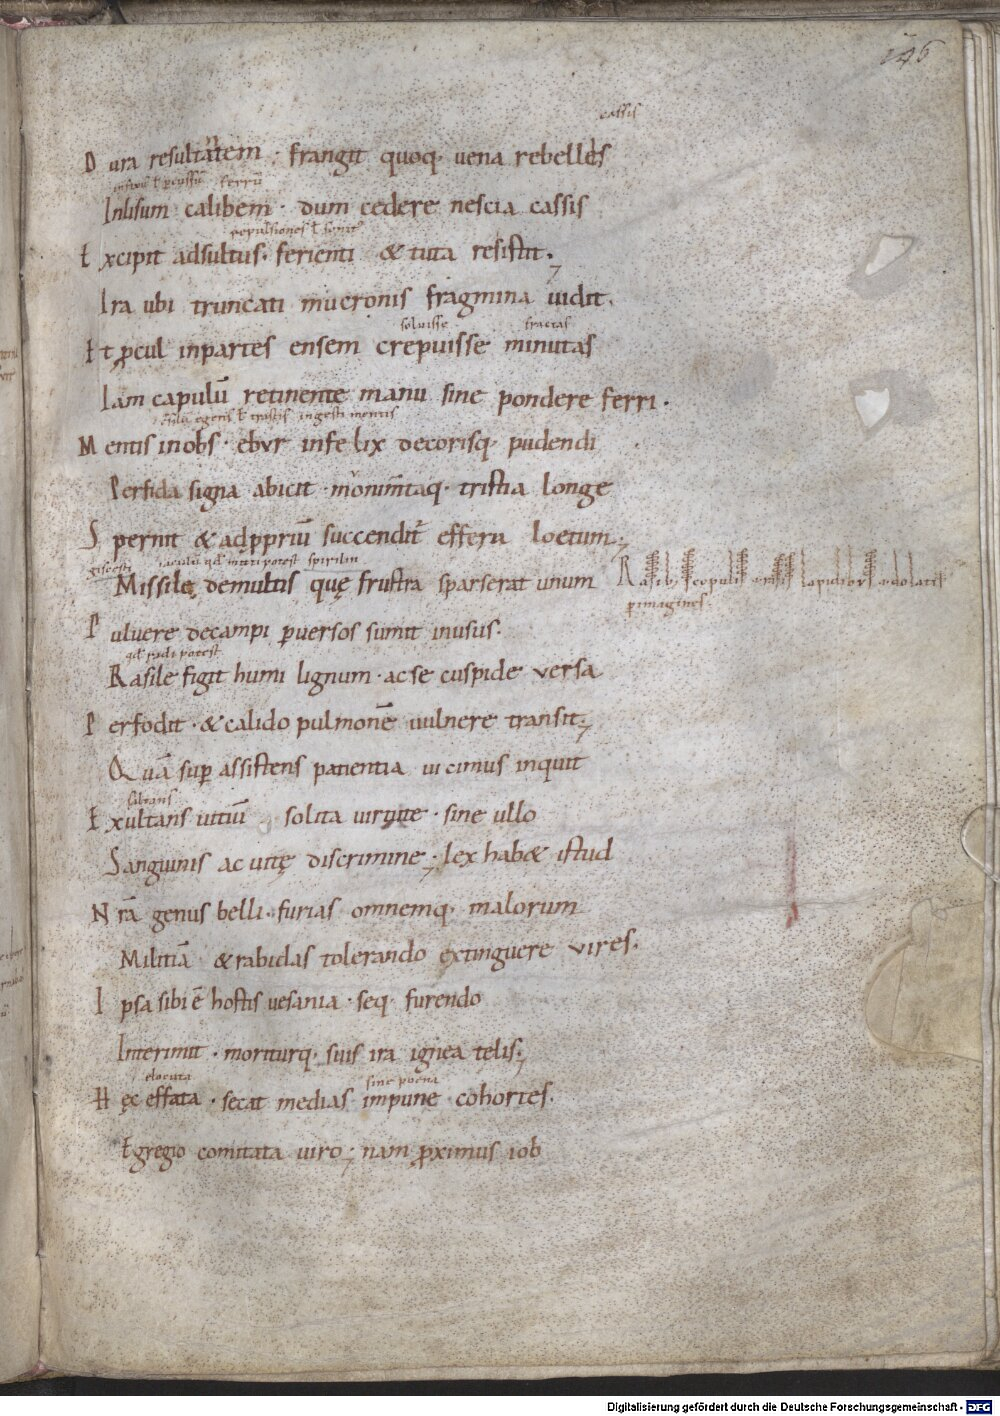 146
cassis
Dura resultantem · frangit quoq· uena rebelles
ferrũ
Inlisum calibem · dum cedere nescia cassis
Excipit adsultus · ferienti & tuta resistit·
Ira ubi truncati mucronis fragmina uidit·
soluisse fractas
Et ꝓcul inpartes ensem crepuisse minutas
Iam capulũ retinente manu sine pondere ferri·
ingesti mentis
Mentis inobs · ebur infelix decorisq· pudendi
Perfida signa abicit · monimtaq· tristia longe
Spernit & adꝓpriũ succendit effera loetum;
qd mitti potest
Missile demultis quę frustra sparserat unum
Rasilib; scopulis
p imagines
Puluere decampi ꝑuersos sumit inusus·
qd radi potest
Rasile figit humi lignum · acse cuspide versa
Perfodit · & calido pulmonẽ uulnere transit;
Quã suꝑ assistens patientia uicimus inquit
Exultans uitiũ solita virtute · sine ullo
Sanguinis ac uitę discrimine; lex hab& istud
Nrã genus belli · furias omnemq· malorum
Militiã & rabidas tolerando extinguere vires·
Ipsa sibi ẽ hostis uesania · seq· furendo
Interimit · moriturq· suis ira ignea telis;
elocuta sine poena
Hęc effata · secat medias impune cohortes·
Egregio comitata uiro; nam ꝓximus iob
Digitalisierung gefördert durch die Deutsche Forschungsgemeinschaft - DFG